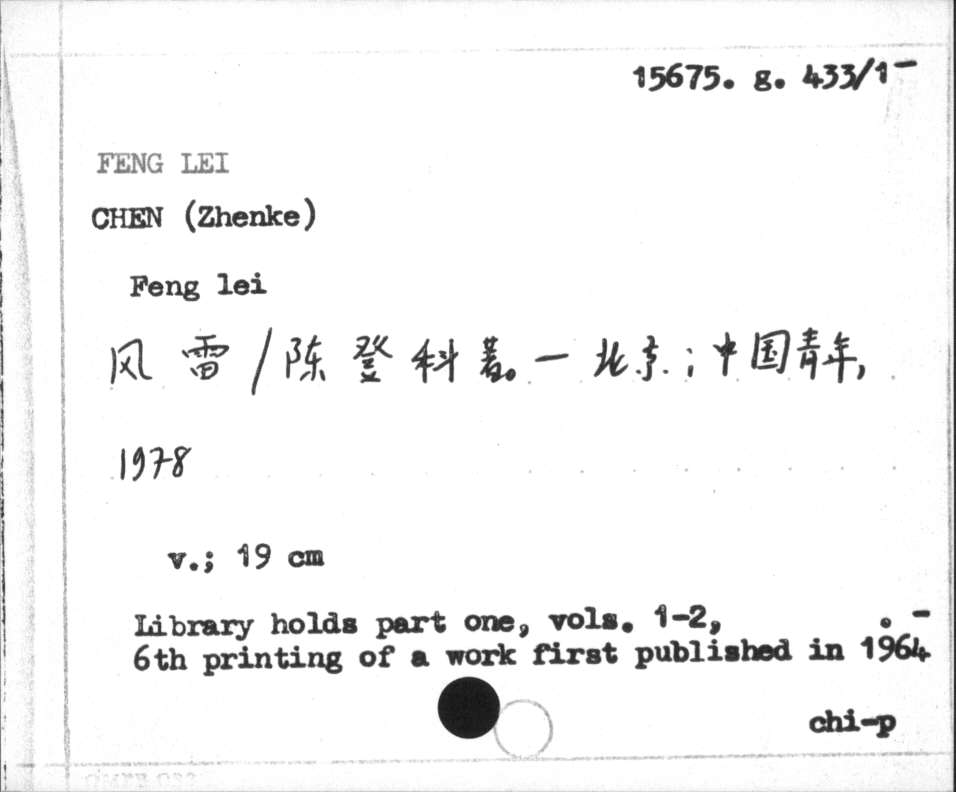 15675. g. 433/1-
FENG LEI
CHEN (Zhenke)
Feng lei
风雷/陈登科著。—北京:中国青年,
1978
v.; 19 cm
Library holds part one, vols. 1-2,
6th printing of a work first published in 1964. -
chi-p